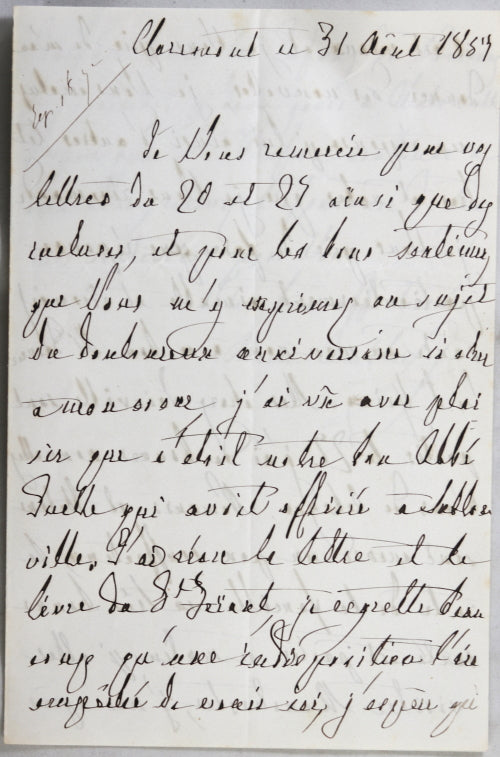 Claremont ce 31 Août 1857
Rép. le 5
Je Vous remercie pour vos
lettres du 20 et 27 ainsi que des
incluses, et pour les bons sentimens
que Vous m'y exprimez au sujet
du douloureux anniversaire si cher
a mon coeur, j'ai vu avec plai
sir que c'etoit notre bon Abbé
Duelle qui avoit officié a
ville. J'ai réçu la lettre et le
livre du Dr je regrette beau
coup qu'une indisposition l'aie
empêché de venir ici, j'espère qu